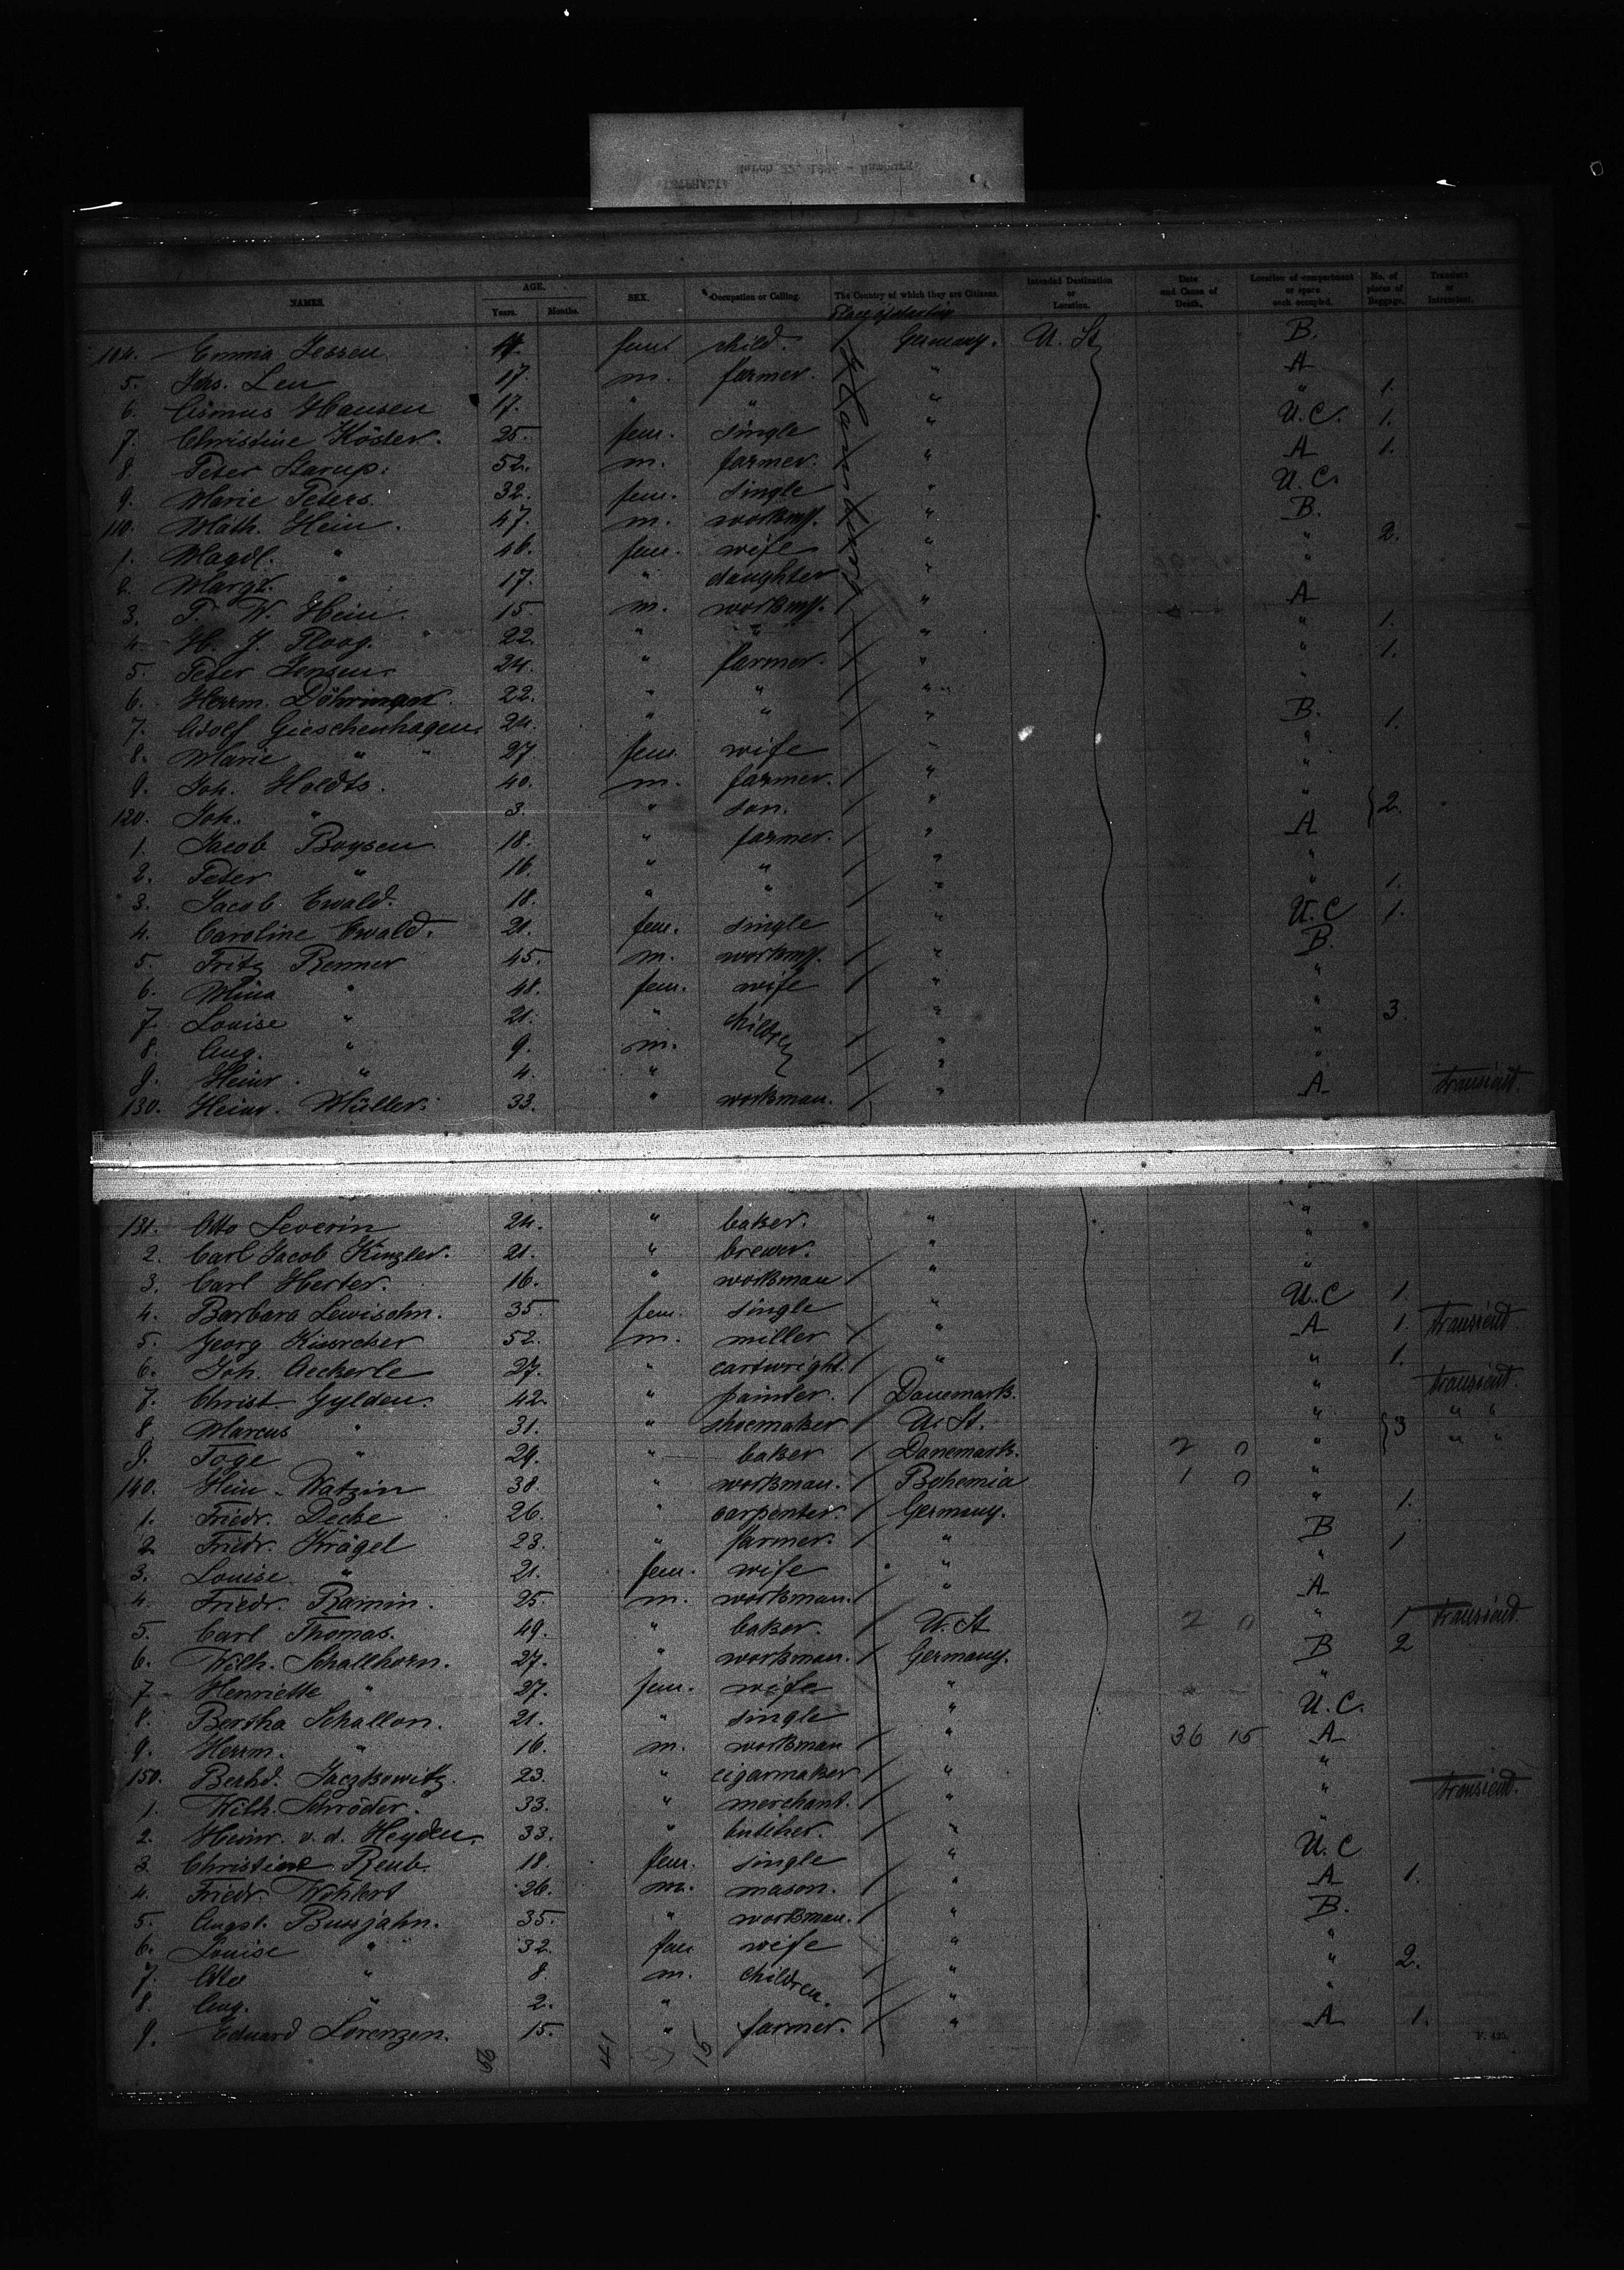 March 27, 1886 - Hamburg.
WESTPHALIA
NAMES. AGE. Years. Months. SEX. Occupation or Calling. The Country of which they are Citizens. Intended Destination or Location. Date and Cause of Death. Location of compartment or space each occupied. No. of pieces of Baggage. Transient or Intransient.
104. Emma Jessen 4. fem. child. / Germany. U. St. B.
5. Leu 17. m. farmer. / " A
6. Asmus Hansen 17. " " / " " 1.
7. Christine Köster. 25. fem. single " U. C. 1.
8 Peter Starup. 52. m. farmer. / " A 1.
9. Marie Peters. 32. fem. single " U. C.
110. Math. Hein. 47. m. workm. / " B.
1. Magdl. " 46. fem. wife " " 2.
2. Margr. " 17. " daughter " "
3. P. W. Hein. 15. m. workm. / " A
4. H. J. Ploog. 22. " " / " " 1.
5. Peter Jensen 24. " farmer. / " " 1.
6. Herrm. Döhringer. 22. " " / " "
7. Adolf Gieschenhagen. 24. " " / " B. 1.
8. Marie " 27. fem. wife " "
9. Joh. Holdts. 40. m. farmer. / " "
120. Joh. " 3. " son. / " " 2.
1. Jacob Boysen 18. " farmer. / " A
2. Peter " 16. " " / " "
3. Jacob Ewald. 18. " " / " " 1.
4. Caroline Ewald. 21. fem. single " U. C 1.
5. Fritz Renner 45. m. workm. / " B.
6. Mina " 48. fem. wife / " "
7. Louise " 21. " children " " 3.
8. Aug. " 9. m. / " "
9. Heinr. " 4. " / " "
130. Heinr. Müller. 33. " workman. / " A transient.
131. Otto Severin 24. " baker. " "
2. Carl Jacob Kinzler. 21. " brewer. / " "
3. Carl Herter. 16. " workman / " "
4. Barbara Lewisohn. 35. fem. single " U. C 1.
5. Georg 52. m. miller / " A 1. transient.
6. Joh. Aeckerle 27. " cartwright. / " " 1.
7. Christ. Gylden. 42. " painter. / Danemark. " transient.
8 Marcus " 31. " shoemaker / U. St. " 3 " "
9. Toge " 29. " baker / Danemark. 2 0 " " "
140. Hein. Watzin 38. " workman. / Bohemia 1 0 "
1. Friedr. Decke 26. " carpenter. / Germany. " 1.
2 Friedr. Krägel 23. " farmer. / " B 1
3. Louise " 21. fem. wife " "
4. Friedr. Ramin. 25. m. workman. / " A
5. Carl Thomas. 49. " baker. / U. St 2 0 " 1 transient.
6. Wilh. Schallhorn. 27. " workman. / Germany. B 2
7 Henriette " 27. fem. wife " "
8. Bertha Schallon. 21. " single " U. C.
9. Herrm. " 16. m. workman / " 36 15 A
150. Berhd. Jaczkowitz. 23. " cigarmaker / " "
1. Wilh. Schröder. 33. " merchant. / " " transient.
2. Heinr. v. d. Heyden. 33. " butcher. / " "
3 Christiane Reub. 18. fem. single " U. C
4. Friedr. Wöhlert 26. m. mason. / " A 1.
5. Augst. Bussjahn. 35. " workman. / " B.
6. Louise " 32. fem wife " "
7. Otto " 8. m. children. / " " 2.
8. Aug. " 2. " / " "
9. Eduard Lorenzen. 15. " farmer. / " A 1.
F. 425.